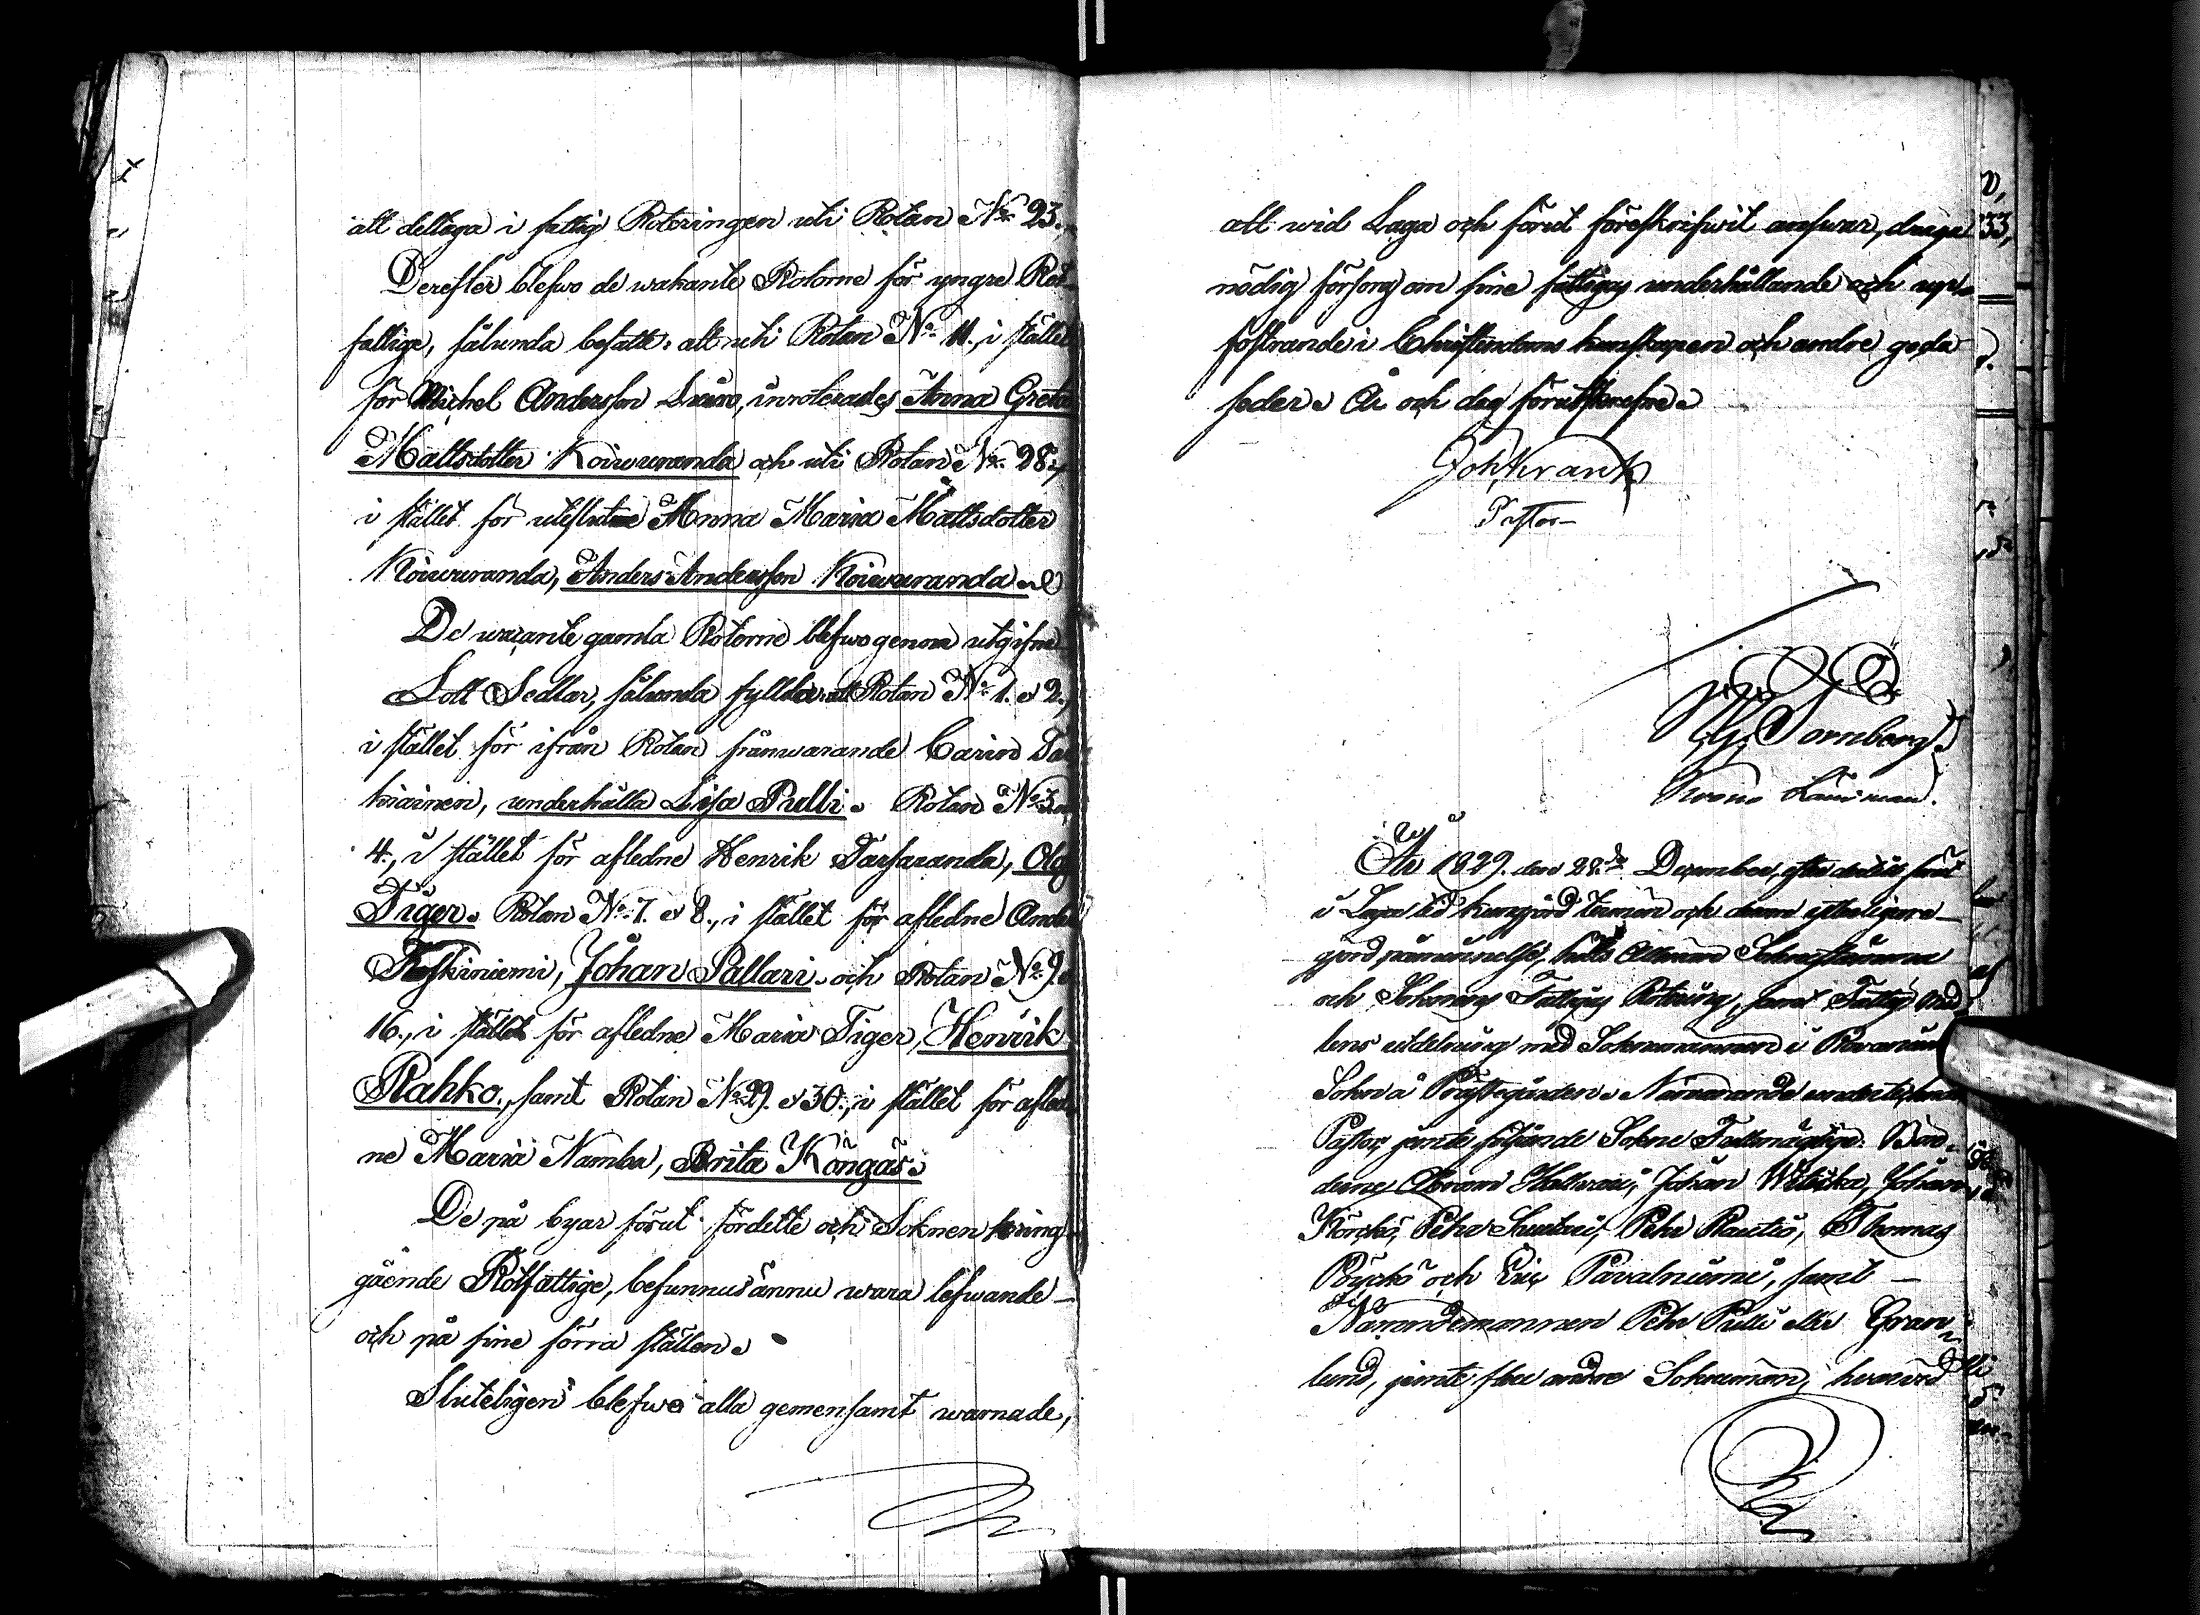 att deltaga i fattig Roteringen uti Rotan No 23.
Derefter blefwo de wakante Rotorne för yngre Rot
fattige, sålunda besatte: att uti Rotan No 11., i stället
för Michel Andersson inroterades Anna Greta
Mattsdotter Koiwuranda och uti Rotan No 28.,
i stället för utesluttne Anna Maria Mattsdotter
Koiwuranda, Anders Andersson Koiwuranda
De wacante gamla Rotorne blefwo genom utgifne
Lott Sedlar, sålunda fyllda: att Rotan No 1. & 2.,
i stället för ifrån Rotan frånwarande Carin
underhålla Lisa Pulli. Rotan No 3.
4., i stället för aflidne Henrik Tarsaranda, Olof
Tiger. Rotan No 7. & 8., i stället för aflidne
Koskiniemi, Johan Pallari. och Rotan No 9.
16., i stället för aflidne Maria Tiger, Henrik
Rahko, samt Rotan No 29. & 30., i stället för afled
ne Maria Namba, Brita Köngäs.
De på byar förut fördelte och Soknen kring
gående Rotfattige, befunnus ännu wara lefwande
och på sine förra ställen.
Sluteligen blefwo alla gemensamt warnade,
att wid Laga och förut föreskrifwit answar, draga
nödig försorg om sine fattigas underhållande och upp
fostrande i Christendoms kunskapen och andre goda
seder. År och dag förutskrefne.
Joh Wrank
Pastor
Tornberg
Krono Länsman.
År 1829. den 28de December, efter dertill förut
i Laga tid kungjord termin och derom ytterligare
gjord påminnelse, hölls Allmän Soknestämma
och Soknens Fattigas Rotering, samt Fattig Med
lens utdelning med Soknemännen i Rovaniemi
Sokn å Prästegården. Närwarande undertecknad
Pastor, jemte följande Sokne Fullmägtige: Bön
derne Abram Johan Johan
Pehr Pehr Rautio, Thomas
Pöyckö och Eric Pavalniemi, samt
Nämndemannen Pehr Pulli eller Gran
lund, jemte flere andre Soknemän, hwarwid